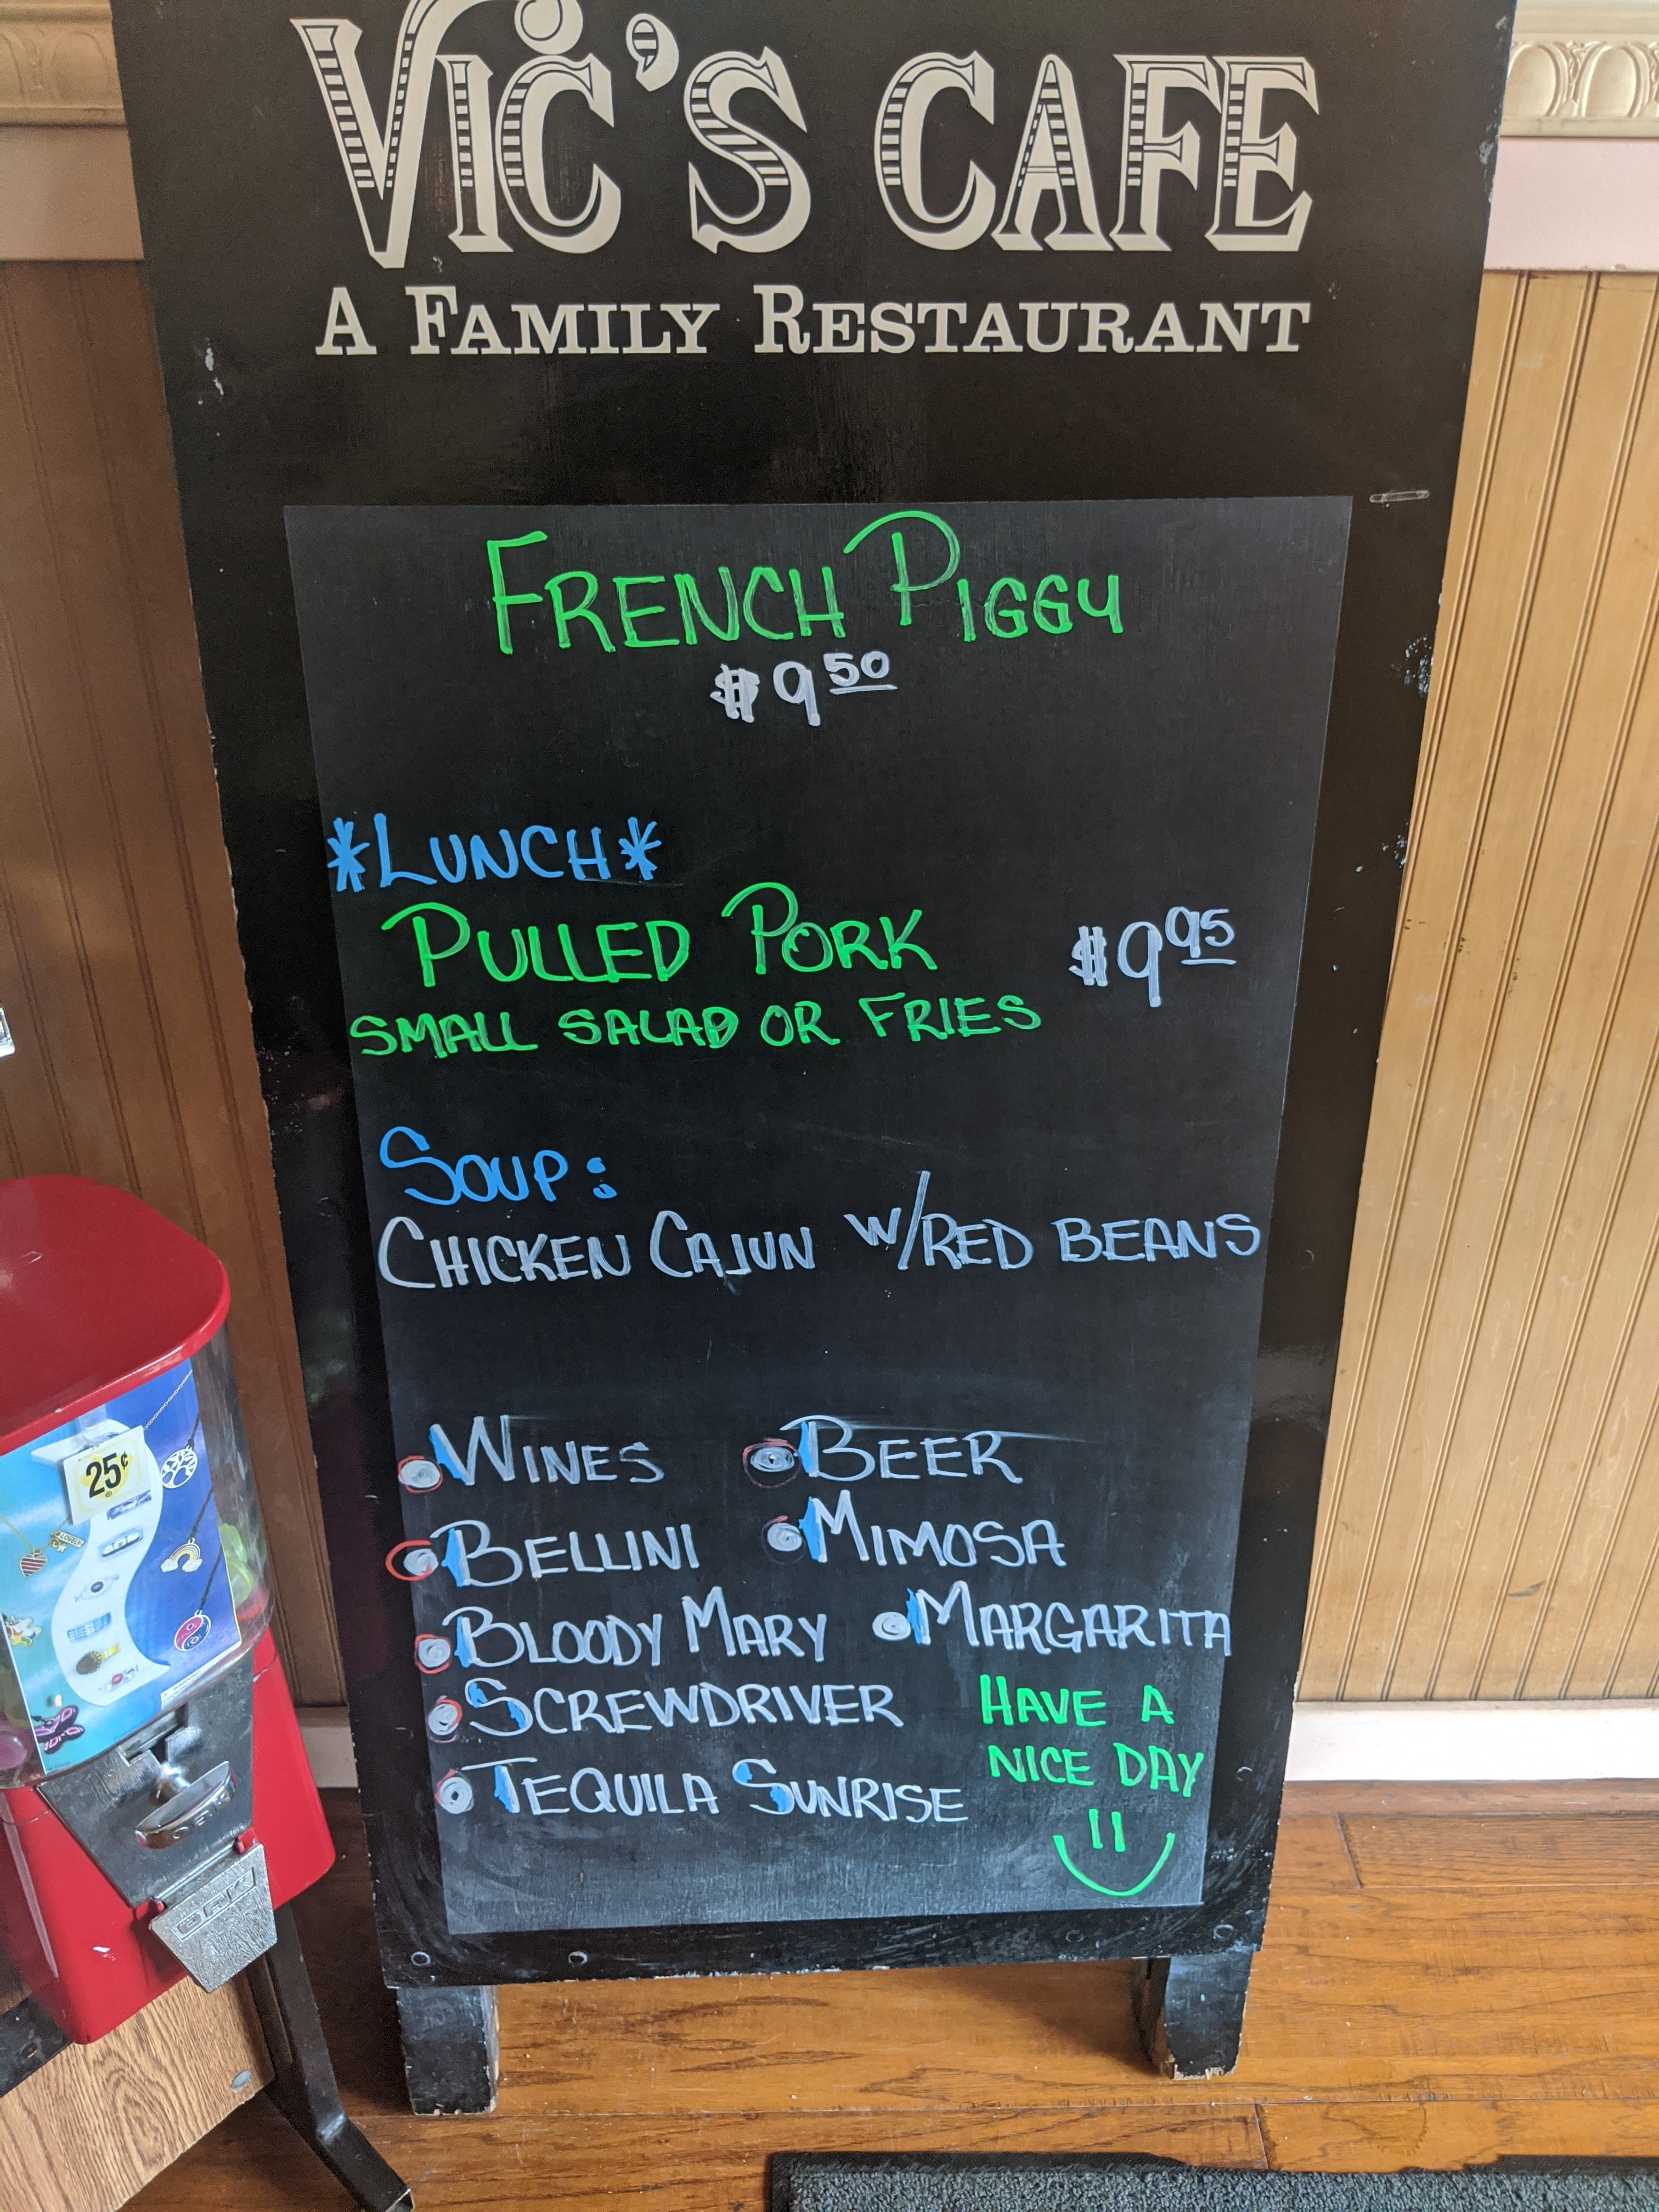 VIC'S CAFE
A FAMILY RESTAURANT
FRENCH PIGGY
$9.50
*LUNCH*
PULLED PORK $9.95
SMALL SALAD OR FRIES
SOUP:
CHICKEN CAJUN W/RED BEANS
WINES BEER
BELLINI MIMOSA
BLOODY MARY MARGARITA
SCREWDRIVER
TEQUILA SUNRISE
HAVE A
NICE DAY
25¢